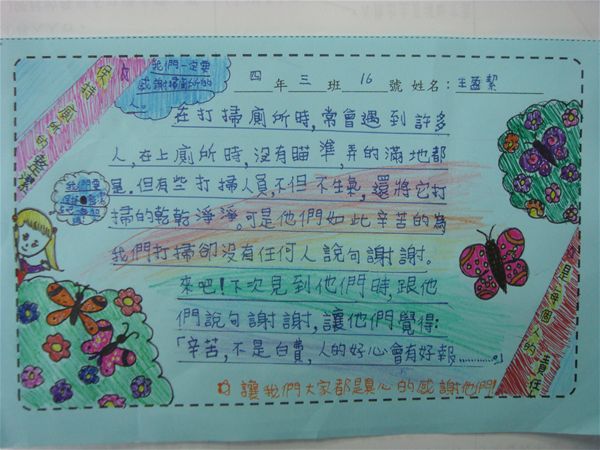 保持廁所的整潔
我們一定要
感謝掃廁所的
四年三班16號姓名:王孟絜
在打掃廁所時,常會遇到許多
人,在上廁所時,沒有瞄準,弄的滿地都
是.但有些打掃人員,不但不生氣,還將它打
掃的乾乾淨淨。可是他們如此辛苦的為
我們打掃卻沒有任何人說句謝謝。
來吧!下次見到他們時,跟他
們說句謝謝,讓他們覺得:
「辛苦,不是白費,人的好心會有好報…………。」
我們要
是每個人的責任
讓我們大家都是真心的感謝他們!